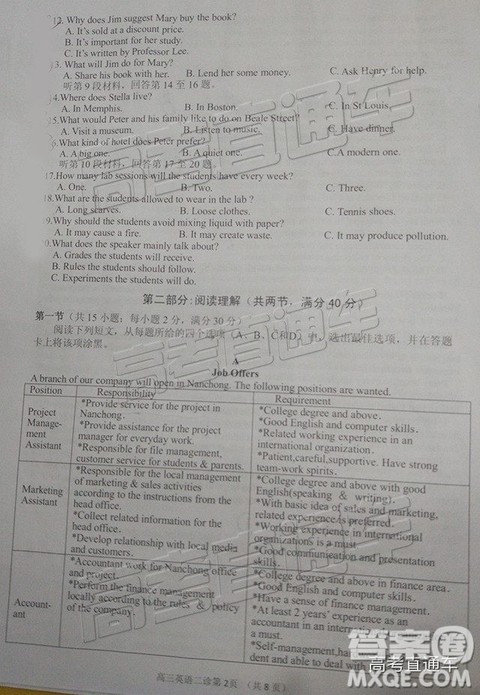 12. Why does Jim suggest Mary buy the book?
A. It's sold at a discount price.
B. It's important for her study.
C. It's written by Professor Lee.
3. What will Jim do for Mary?
A. Share his book with her. B. Lend her some money. C. Ask Henry for help.
听第9段材料，回答第14至16题。
4.Where does Stella live?
A. In Memphis. B. In Boston. C. In St Louis.
5.What would Peter and his family like to do on Beale Street?
A. Visit a museum. B. Listen to music. C. Have dinner.
6.What kind of hotel does Peter prefer?
A. A big one. B. A quiet one. C.A modern one.
听第10段材料，回答第17至20题。
7.How many lab sessions will the students have every week?
A. One. B. Two. C. Three.
8.What are the students allowed to wear in the lab ?
A. Long scarves. B. Loose clothes. C. Tennis shoes.
9.Why should the students avoid mixing liquid with paper?
A. It may cause a fire. B. It may create waste. C. It may produce pollution.
0.What does the speaker mainly talk about?
A. Grades the students will receive.
B. Rules the students should follow.
C. Experiments the students will do.
第二部分:阅读理解（共两节，满分40分）
第一节(共15小题；每小题2分，满分30分)
阅读下列短文，从每题所给的四个选项（A、B、C和D）中，选出最佳选项，并在答题
卡上将该项涂黑。
A
Job Offers
A branch of our company will open in Nanchong. The following positions are wanted.
Position Responsibility Requirement
Project
Manage-
ment
Assistant
*Provide service for the project in
Nanchong.
*Provide assistance for the project
manager for everyday work.
*Responsible for file management,
customer service for students & parents.
*College degree and above.
*Good English and computer skills.
*Related working experience in an
international organization.
*Patient,careful,supportive. Have strong
team-work spirits.
Marketing
Assistant
*Responsible for the local management
of marketing & sales activities
according to the instructions from the
head office.
*Collect related information for the
head office.
*Develop relationship with local media
and customers.
*College degree and above with good
English(speaking & writing).
*With basic idea of sales and marketing,
related experience is preferred.
*Working experience in international
organizations is a must.
*Good communication and presentation
skills.
Account-
ant
*Accountant work for Nanchong office
and project.
*Perform the finance management
locally according to the rules & policy
of the company.
*College degree and above in finance area.
*Good English and computer skills.
*Have a sense of finance management.
*At least 2 years' experience as an
accountant in an international
is a must.
*Self-management,
and able to deal with
高三英语二诊第2页 （共8页）
高考直通车
答案圈
高考直通车